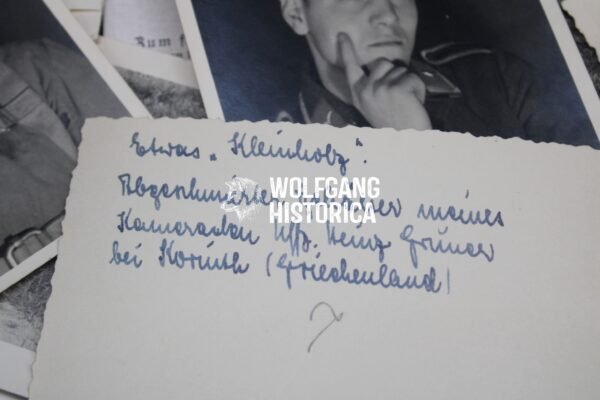 Zum
Etwas „Kleinholz".
meines
WOLFGANG
HISTORICA
Kameraden Uffz. Heinz Grüner
bei Korinth (Griechenland)
7